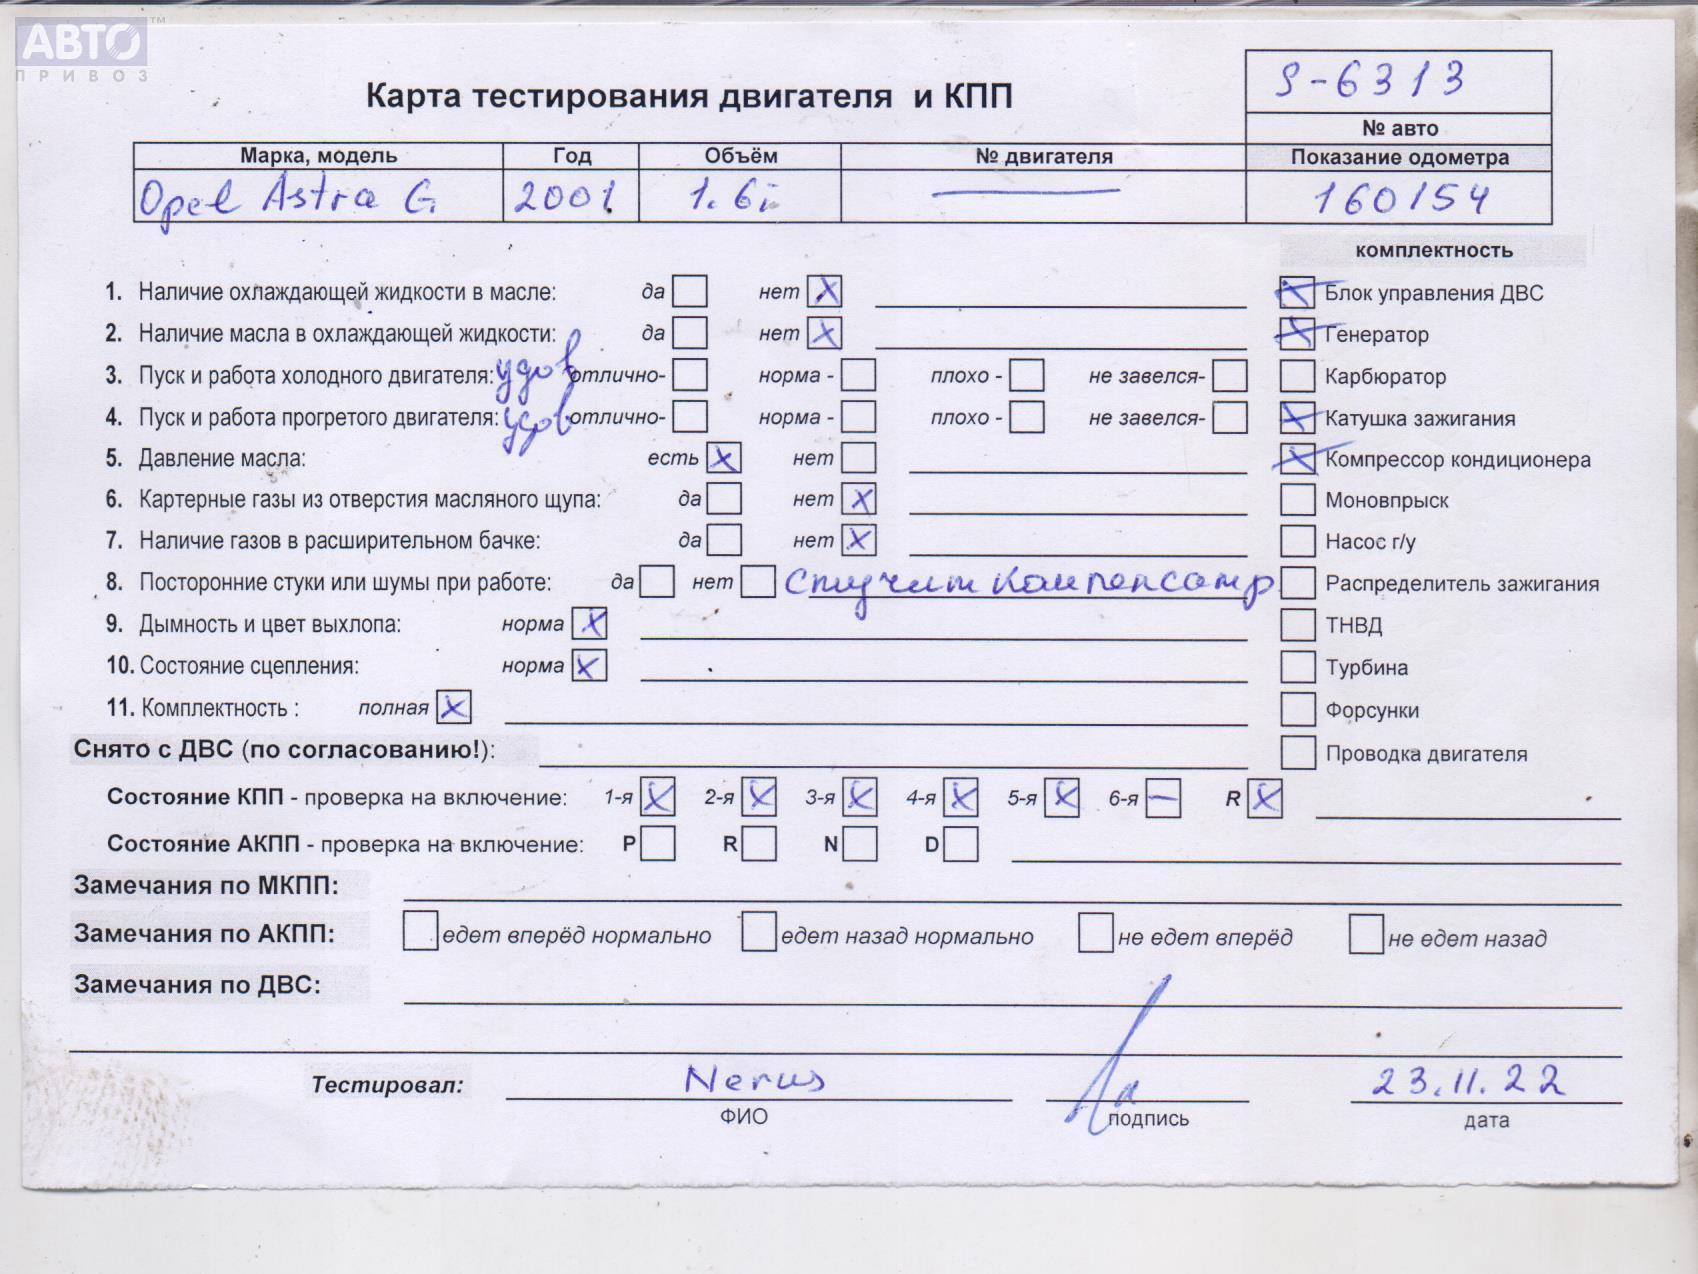 АВТО ™
ПРИВОЗ
Карта тестирования двигателя и КПП
S-6313
№ авто
Марка, модель Год Объём № двигателя Показание одометра
Opel Astra G 2001 1.6i — 160154
комплектность
1. Наличие охлаждающей жидкости в масле: да нет X Блок управления ДВС X
2. Наличие масла в охлаждающей жидкости: да нет X Генератор X
3. Пуск и работа холодного двигателя: удов отлично- норма - плохо - не завелся- Карбюратор
4. Пуск и работа прогретого двигателя: удов отлично- норма - плохо - не завелся- Катушка зажигания X
5. Давление масла: есть X нет Компрессор кондиционера X
6. Картерные газы из отверстия масляного щупа: да нет X Моновпрыск
7. Наличие газов в расширительном бачке: да нет X Насос г/у
8. Посторонние стуки или шумы при работе: да нет Стучит компенсатр Распределитель зажигания
9. Дымность и цвет выхлопа: норма X ТНВД
10. Состояние сцепления: норма X Турбина
11. Комплектность : полная X Форсунки
Снято с ДВС (по согласованию!): Проводка двигателя
Состояние КПП - проверка на включение: 1-я X 2-я X 3-я X 4-я X 5-я X 6-я — R X
Состояние АКПП - проверка на включение: P R N D
Замечания по МКПП:
Замечания по АКПП: едет вперёд нормально едет назад нормально не едет вперёд не едет назад
Замечания по ДВС:
Тестировал: Nerus 23.11.22
ФИО подпись дата